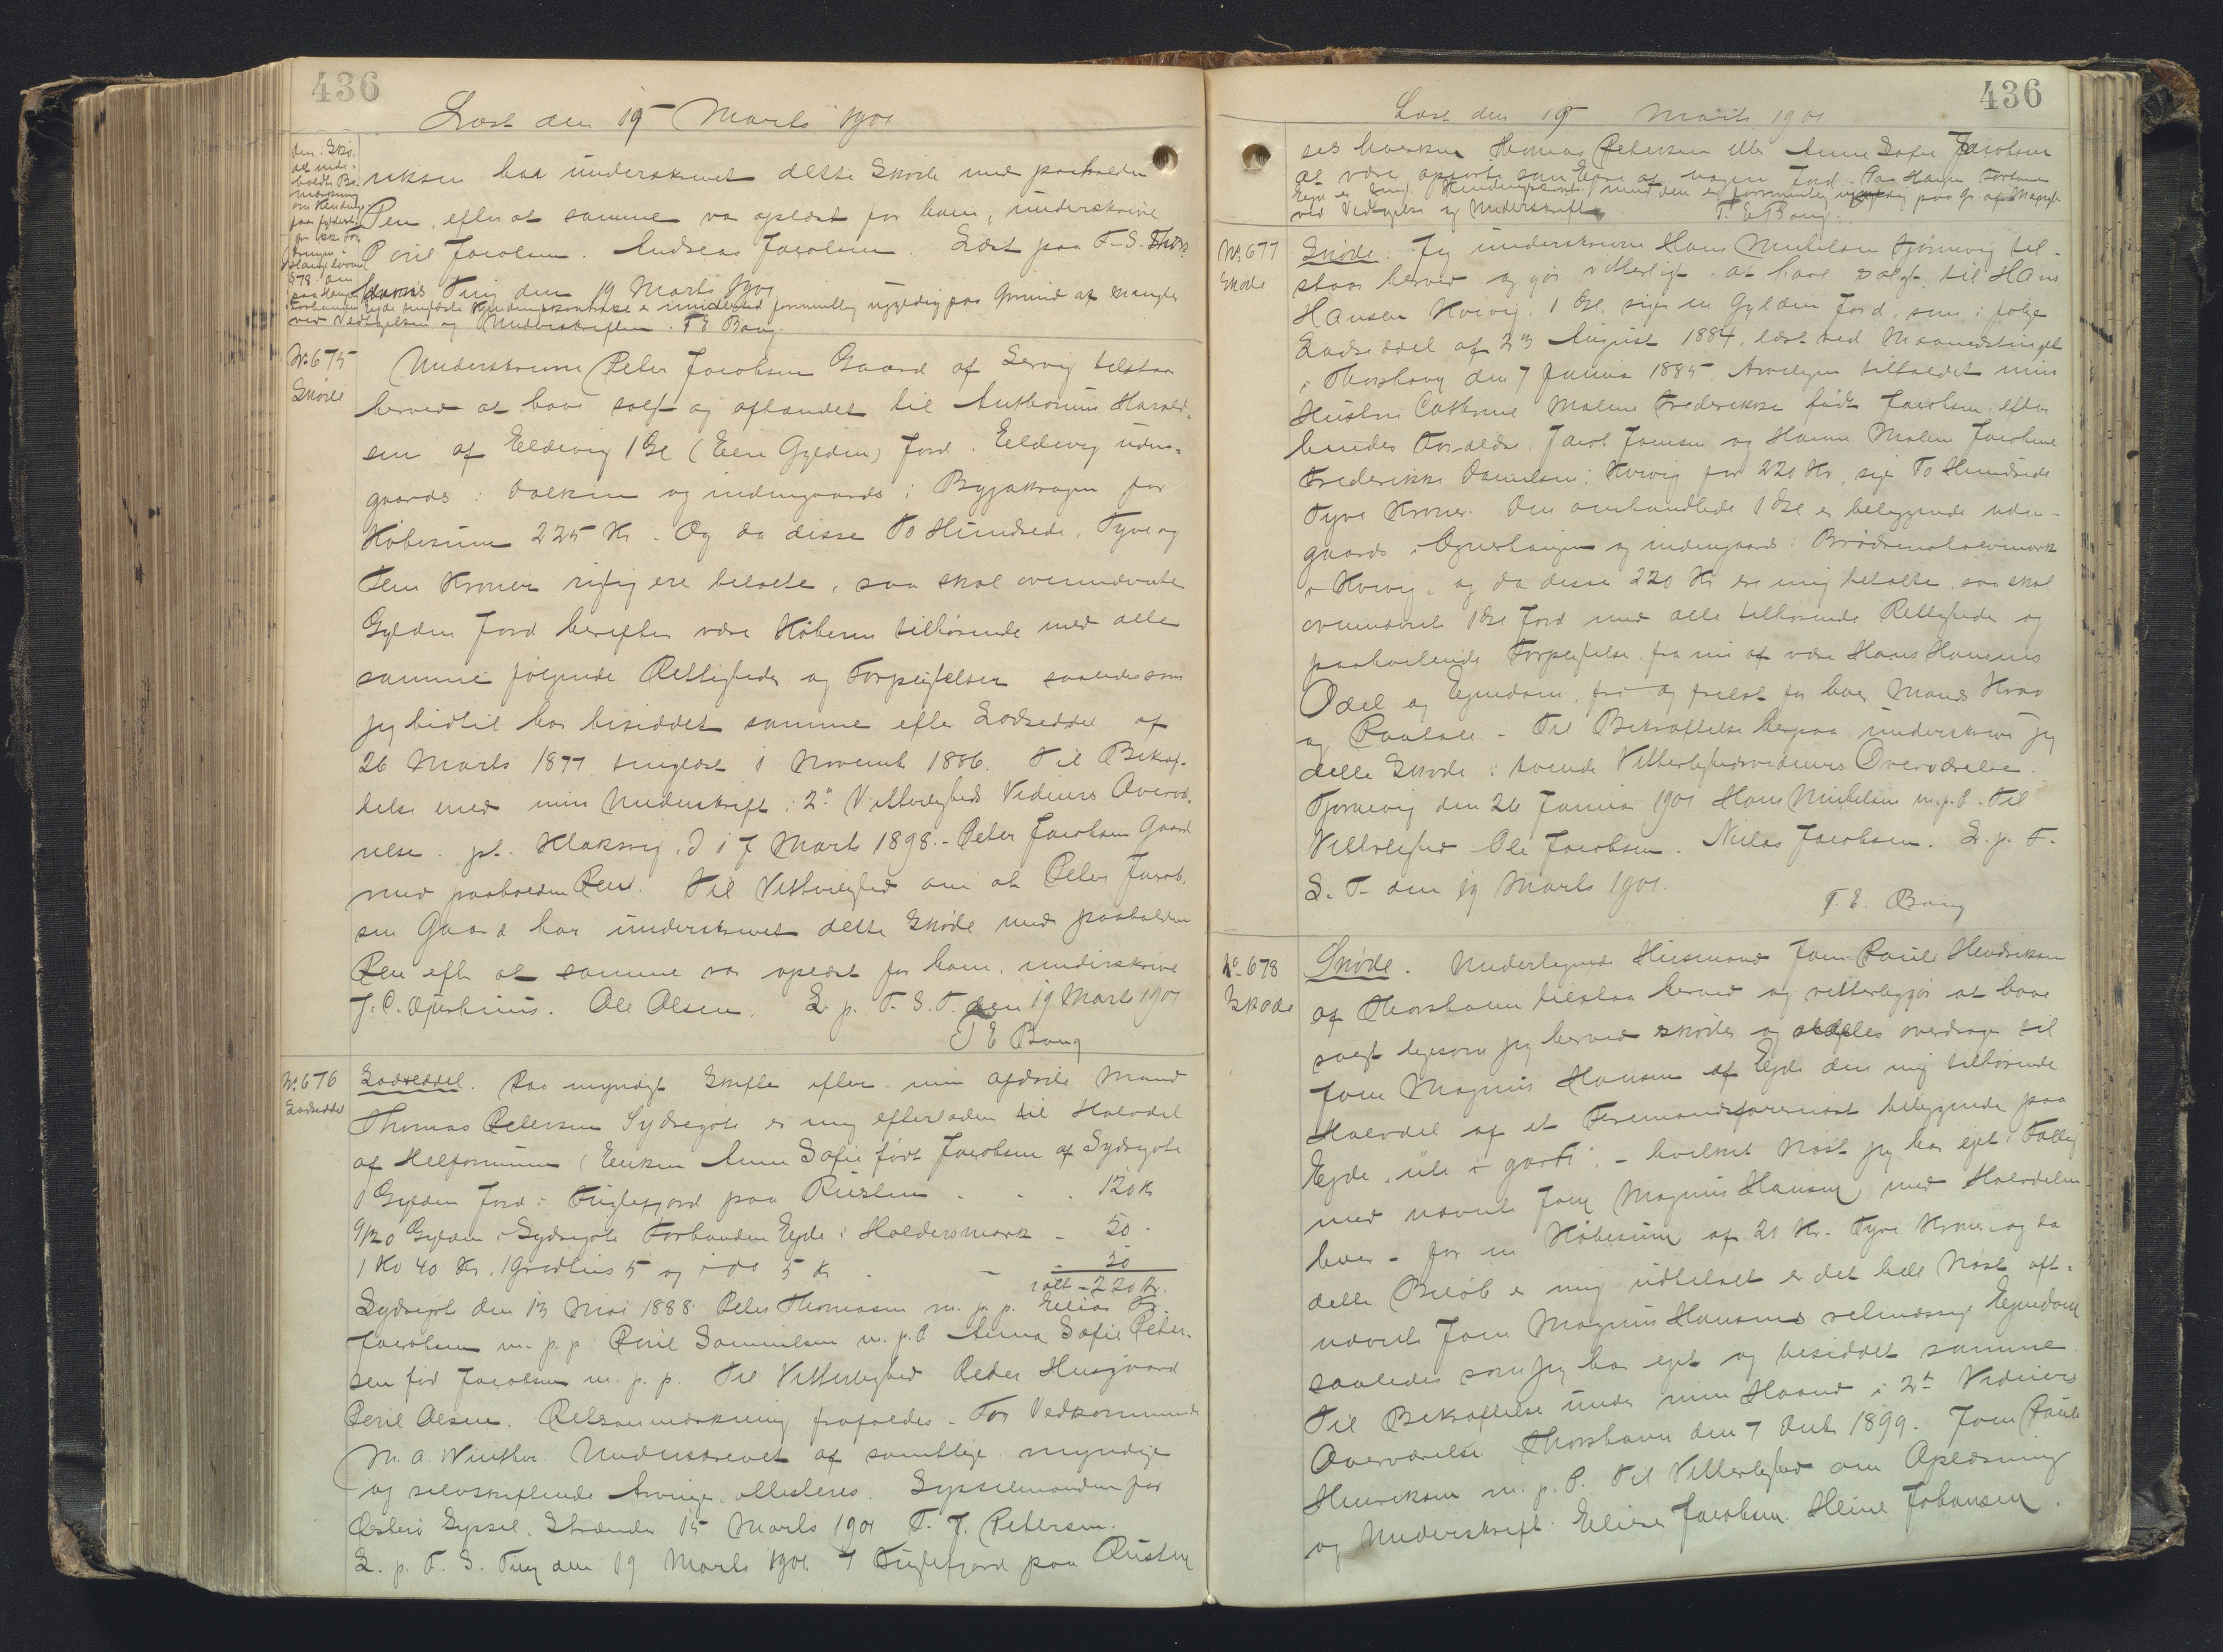 436
Læst den 19 Marts 1901
den i Skø-
det inde-
holdte Be-
mærkning
om
paa
gr. ikke For-
§78
riksen har underskrevet dette Skøde med paaholden
Pen, efter at samme var oplæst for ham, underskrive
Poul Jacobsen. Andreas Jacobsen. Læst paa F. S. Thors-
havns Ting den 19 Marts 1901
er imidlertid formentlig ugyldig paa Grund af Mangler
ved Vedtagelsen og Underskriften. T E Bang.
No. 675
Skøde
Underskrevne Peter Jacobsen Gaard af Servig tilstaar
herved at have solgt og afhændet til Anthonius Harald-
sen af Eldevig 1 Gl (Een Gylden) Jord i Eeldevig uden-
gaards i Dalken og indengaards i Byjakragen for
Købesum 225 Kr. Og da disse To Hundrede, Tyve og
Fem Kroner rigtig ere betalte, saa skal ovennævnte
Gylden Jord herefter være Køberen tilhørende med alle
samme følgende Rettigheder og Forpligtelser saaledes som
jeg hidtil har besiddet samme efter Lodseddel af
26 Marts 1877 tinglæst 1 November 1886. Til Bekræf-
telse med min Underskrift i 2de Vitterligheds Vidners Overvæ-
relse. pt. Klaksvig. D 17 Marts 1898. - Peter Jacobsen Gaard
med paaholden Pen. Til Vitterlighed om at Peter Jacob-
sen Gaard har underskrevet dette Skøde med paaholden
Pen efter at samme var oplæst for ham, underskrive
J. C. Djurhuus. Ole Olsen. L. p. F. S. T. den 19 Marts 1901
T E Bang
No. 676
Lodseddel
Lodseddel. Paa myndigt Skifte efter min afdøde Mand
Thomas Petersen Sydregøte er mig efterladen til Halvdel
af Helformuen (Enken Anne Sofie født Jacobsen af Sydregøte
1 Gylden Jord i Fuglefjord paa Rustun . . . 120 Kr
9/20 Gylden i Sydregøte Forbunden Ejde i Haldersmark - 50 -
1 Ko 40 Kr. 1 Grødhus 5 og i do 5 Kr - 50
ialt - 220 Kr.
Sydregøt den 13 Mai 1888. Peter Thomasen m. p. p. Elias Fr.
Jacobsen m. p. p. Poul Samuelsen m. p. P. Anna Sofie Peter-
sen fød Jacobsen m. p. p. Til Vitterlighed Peder Husgaard
Poul Olsen. Retsanmærkning frafaldes - For Vedkommende
M. A. Winther. Underskrevet af samtlige myndige
og selvskiftende Arvinge, attesteres. Sysselmanden for
Østerø Syssel, Strænder 15 Marts 1901 T. J. Petersen.
L. p. F. S. Ting den 19 Marts 1901. I Fuglefjord paa Rustun
436
Læst den 19 Marts 1901
ses hverken Thomas Petersen eller Anne Sofie Jacobsen
at være opført som Ejere af nogen Jord.
ved Vedtagelse og Underskrift. T. E. Bang.
No. 677
Skøde
Skøde. Jeg underskrevne Hans Mikkelsen Tjørnevig til-
staar herved og gør vitterligt, at have solgt til Hans
Hansen Kvivig, 1 Gl. sige en Gylden Jord, som i følge
Lodseddel af 23 August 1884, læst ved Maanedstinget
i Thorshavn den 7 Januar 1885. Arveligen tilfaldet min
Hustru Cathrine Malene Frederikke født Jacobsen, efter
hendes Forældre, Jacob Joensen og Hanne Malene Jacobine
Frederikke Danielsen i Kvivig for 220 Kr. sige To Hundrede
Tyve Kroner. Den omhandlede 1 Gl er beliggende uden-
gaards i og indengaards i
i Kvivig, og da disse 220 Kr ere mig betalte, saa skal
ovennævnte 1 Gl Jord med alle tilhørende Rettigheder og
paahvilende Forpligtelse fra nu af være Hans Hansens
Odel og Ejendom, fri og frelst for hver Mands Krav
og Paatale. - Til Bekræftelse herpaa underskrive jeg
dette Skøde i tvende Vitterlighedsvidners Overværelse.
Tjørnevig den 26 Januar 1901 Hans Mikkelsen m. p. P. Til
Vitterlighed Ole Jacobsen. Niclas Jacobsen. L. p. F.
S. T. den 19 Marts 1901.
T. E. Bang
No. 678
Skøde
Skøde. Undertegnede Husmand Joen Poul Hendriksen
af Thorshavn tilstaa herved og vitterliggør at have
solgt ligesom jeg herved skøder og aldeles overdrager til
Joen Magnus Hansen af Ejde den mig tilhørende
Halvdel af et Firemandsfarenøst beliggende paa
Ejde "úti í gørð". - hvilket Nøst jeg har ejet i Fælleg
med nævnte Joen Magnus Hansen med Halvdelen
hver - for en Købesum af 20 Kr. Tyve Kroner - og da
dette Beløb er mig udbetalt er det hele Nøst oft-
nævnte Joen Magnus Hansens retmæssige Ejendom
saaledes som jeg har ejet og besiddet samme.
Til Bekræftelse under min Haand i 2de Vidners
Overværelse. Thorshavn den 7 Octb 1899. Joen Poul
Henriksen m. p. P. Til Vitterlighed om Oplæsning
og Underskrift: Elias Jacobsen. Heine Johansen.